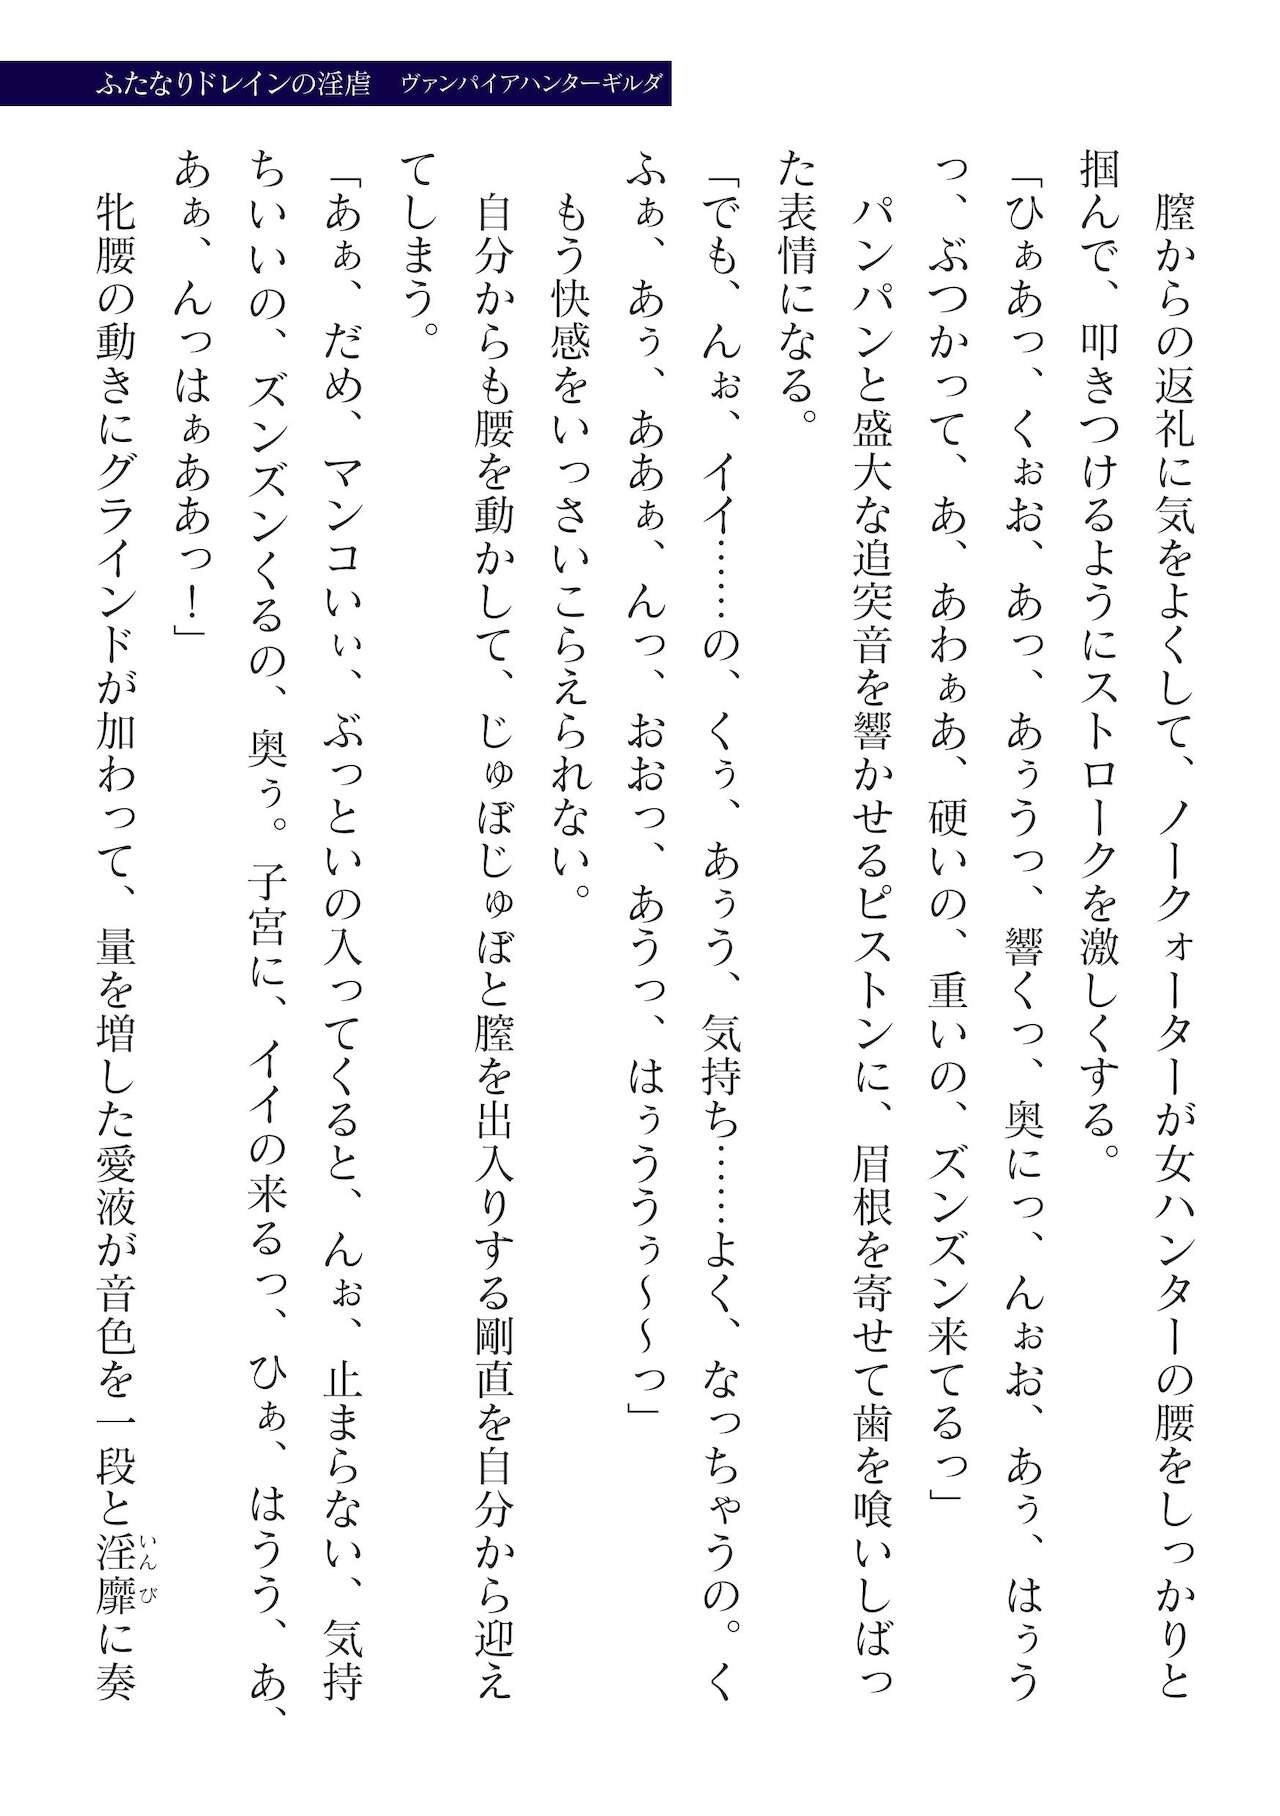 ふたなりドレインの淫虐　ヴァンパイアハンターギルダ
　膣からの返礼に気をよくして、ノークォーターが女ハンターの腰をしっかりと
掴んで、叩きつけるようにストロークを激しくする。
「ひぁあっ、くぉお、あっ、あぅうっ、響くっ、奥にっ、んぉお、あぅ、はぅう
っ、ぶつかって、あ、あわぁあ、硬いの、重いの、ズンズン来てるっ」
　パンパンと盛大な追突音を響かせるピストンに、眉根を寄せて歯を喰いしばっ
た表情になる。
「でも、んぉ、イイ……の、くぅ、あぅう、気持ち……よく、なっちゃうの。く
ふぁ、あぅ、ああぁ、んっ、おおっ、あうっ、はぅううぅ～～っ」
　もう快感をいっさいこらえられない。
　自分からも腰を動かして、じゅぼじゅぼと膣を出入りする剛直を自分から迎え
てしまう。
「あぁ、だめ、マンコいぃ、ぶっといの入ってくると、んぉ、止まらない、気持
ちいいの、ズンズンくるの、奥ぅ。子宮に、イイの来るっ、ひぁ、はうう、あ、
あぁ、んっはぁああっ！」
　牝腰の動きにグラインドが加わって、量を増した愛液が音色を一段と淫靡いんびに奏